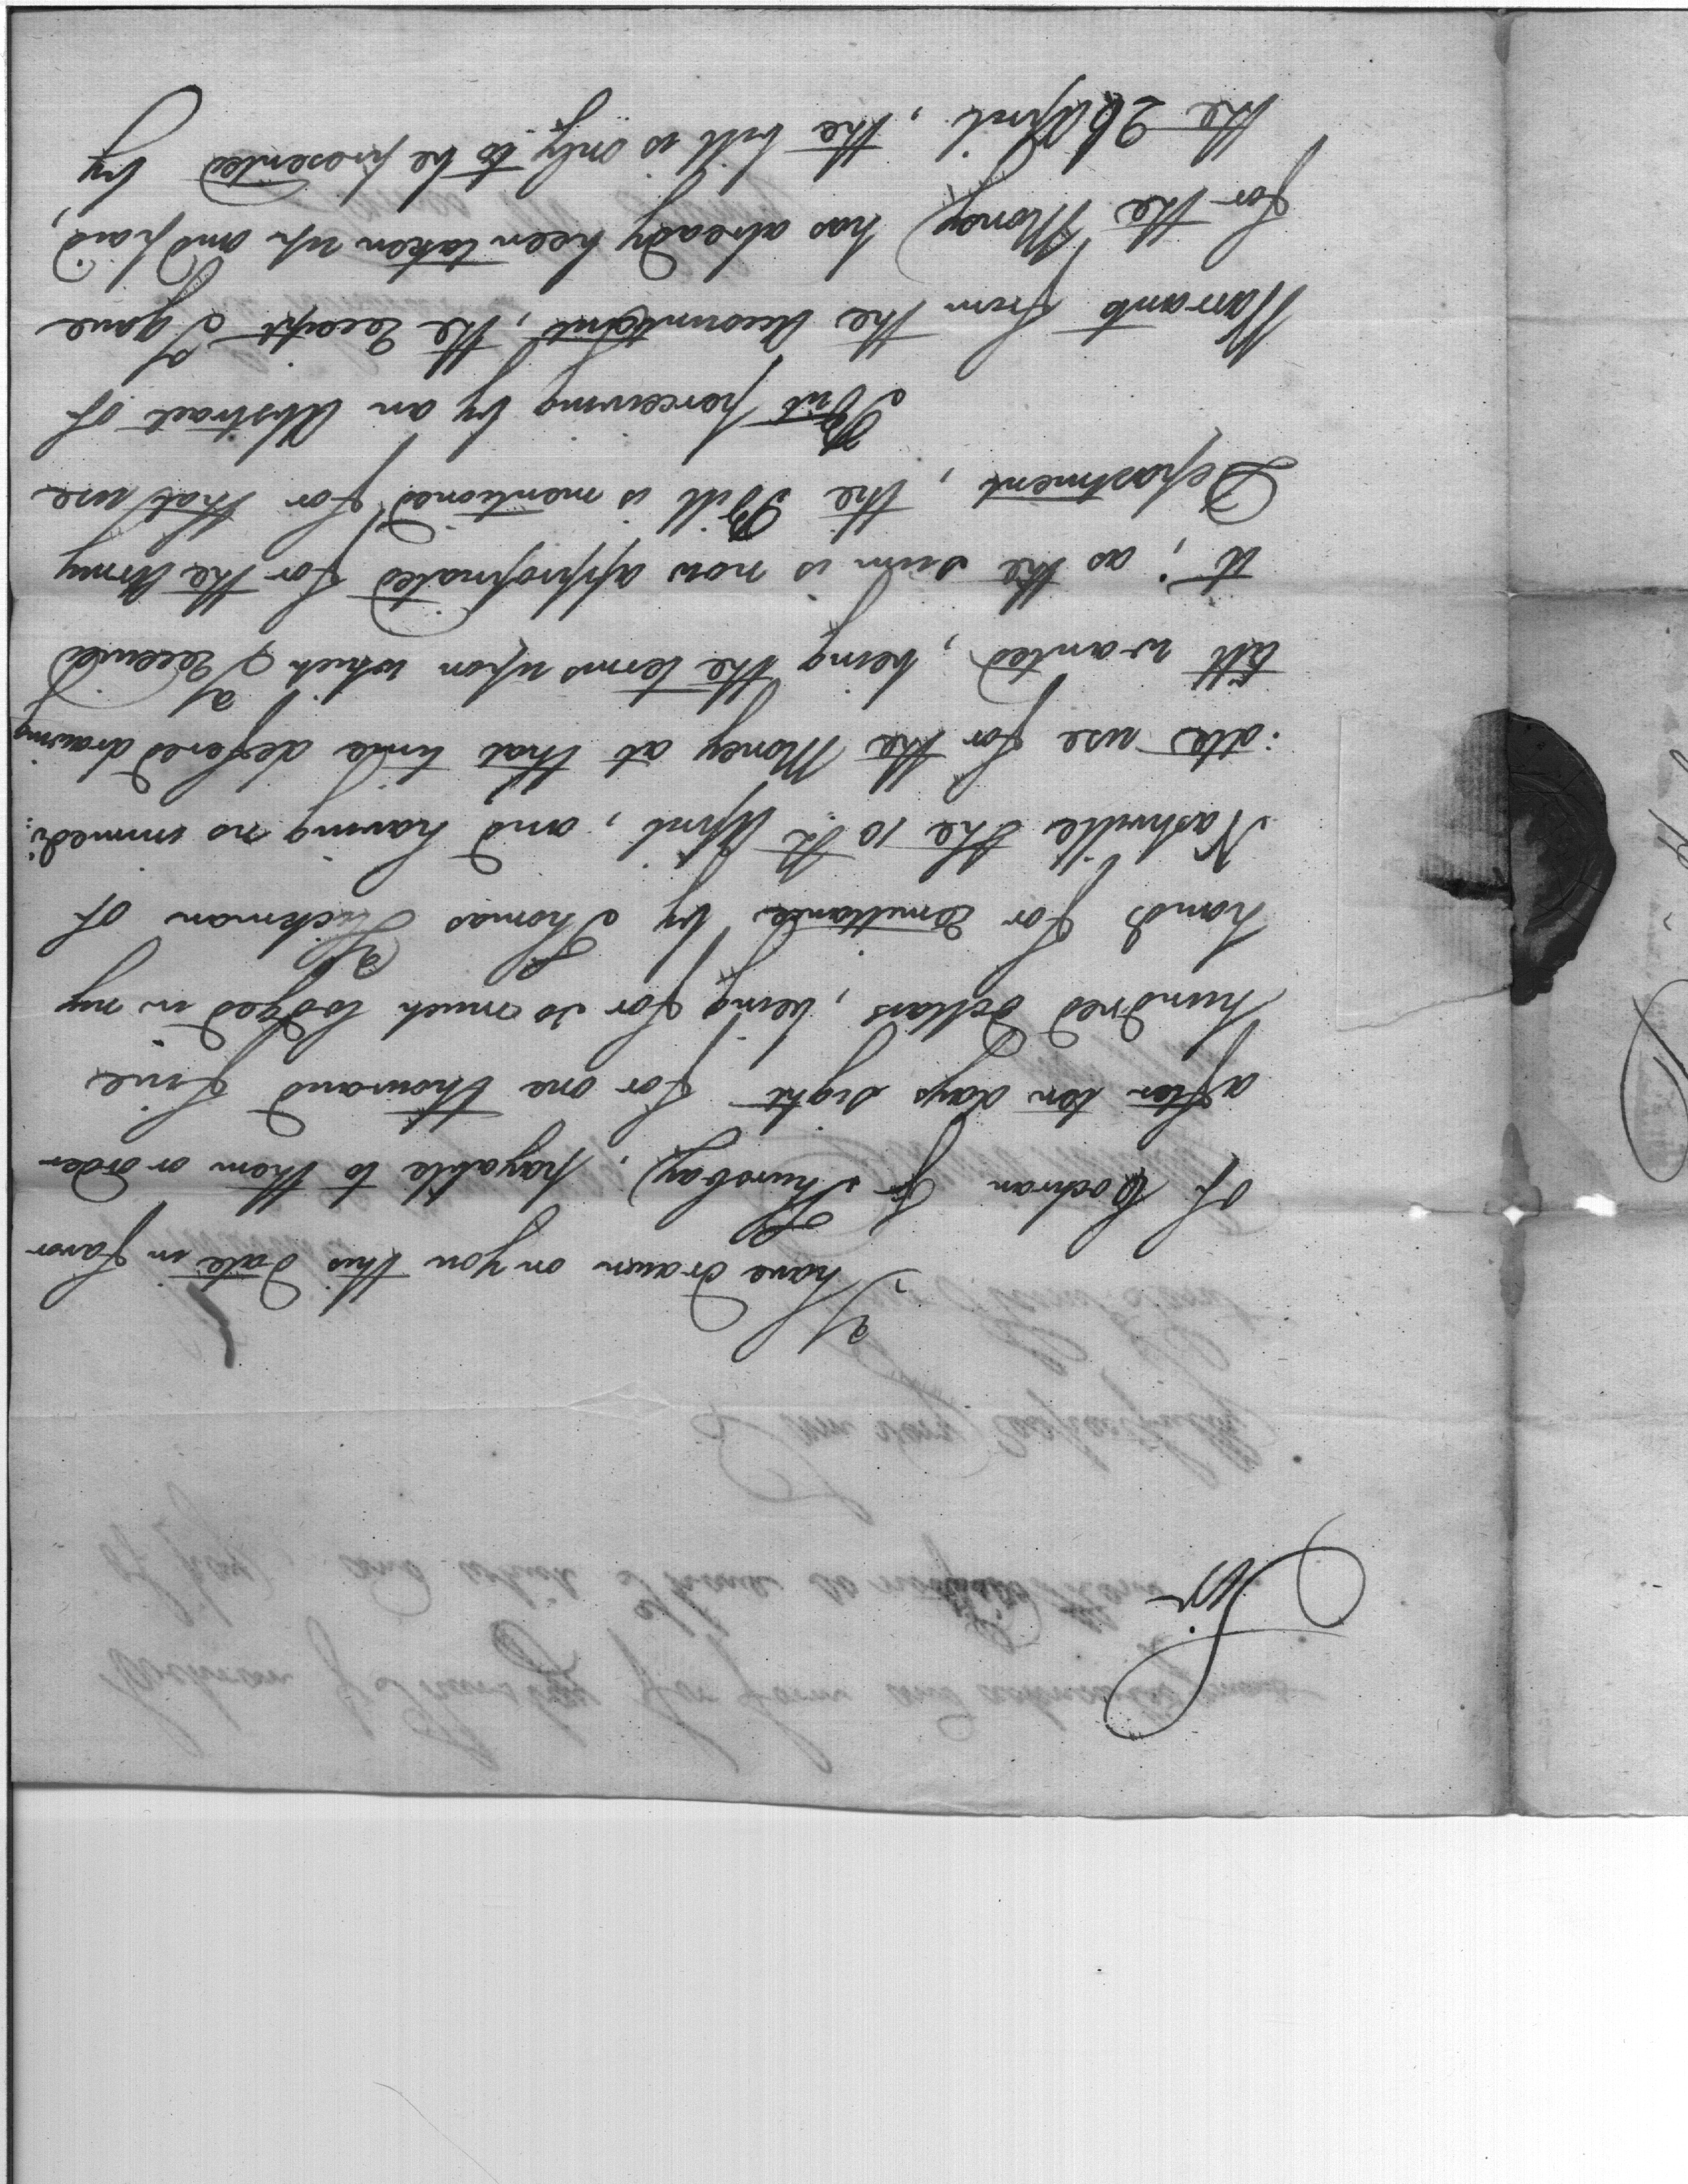 Sir
I have drawn on you this date in favor
of Cochran & Thursby, payable to them or order
after ten days sight for one thousand five
hundred dollars, being for so much lodged in my
hands for remittance by Thomas Hickman of
Nashville the 10th April, and having no immedi:
:ate use for the Money at that time deffered drawing
till wanted, being the terms upon which I Received
it; as the sum is now appropriated for the Army
Department, the Bill is mentioned for that use
But perceiving by an Abstract of
Warrants from the Accountant, the Receipt I gave
for the Money has already been taken up and paid,
the 26 April, the bill is only to be presented by